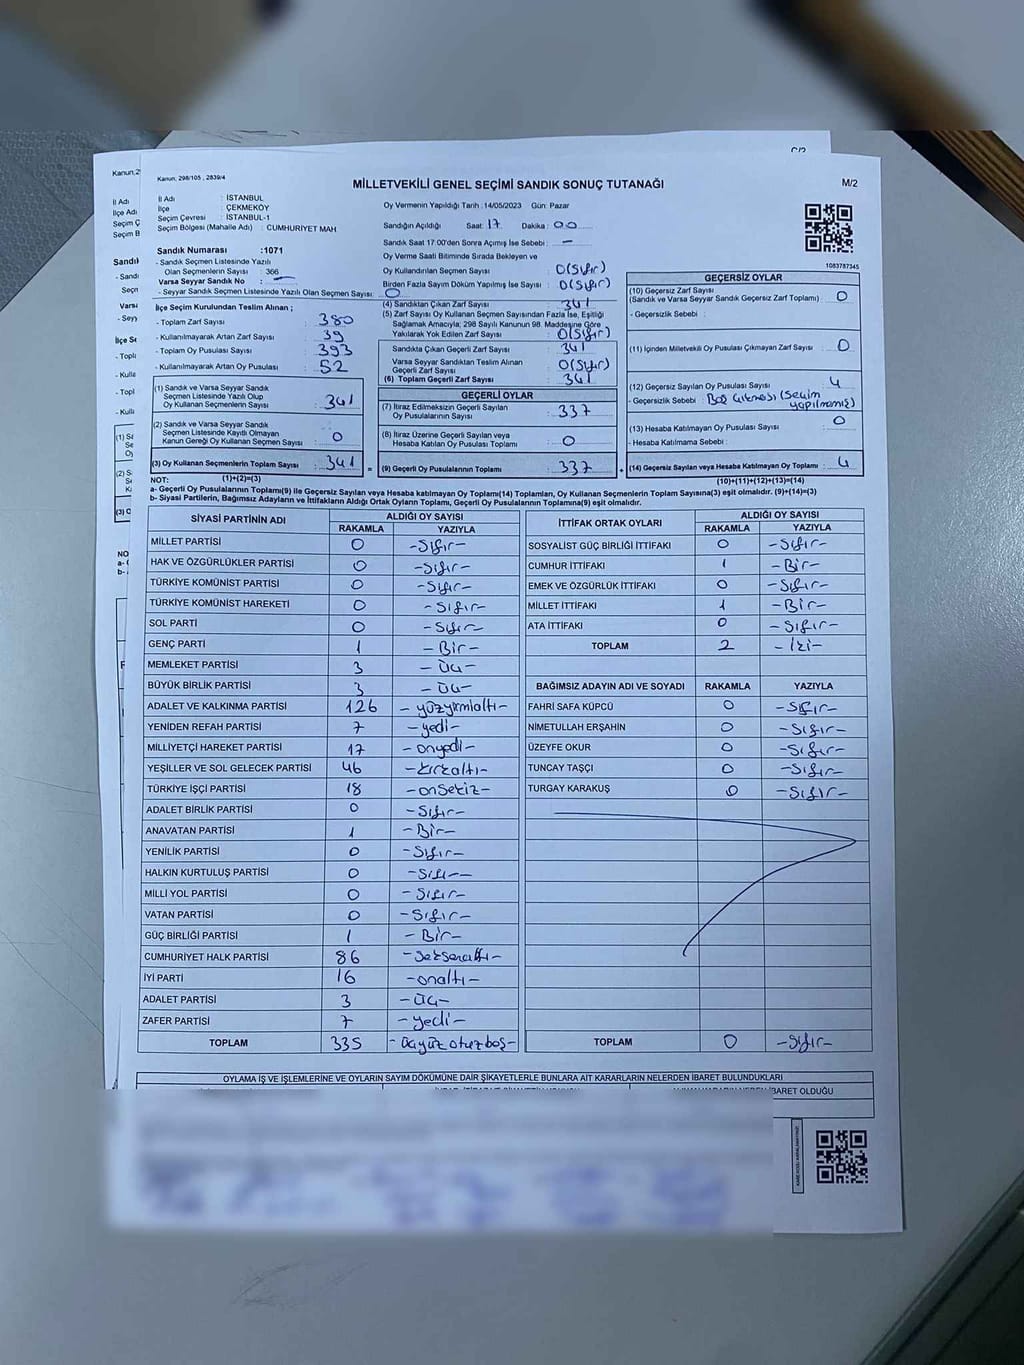 C/2
Kanun, 2
İl Adı
İlçe Adı
Seçim Ç
Seçim B
Kanun, 298/105 , 2839/4
MİLLETVEKİLİ GENEL SEÇİMİ SANDIK SONUÇ TUTANAĞI
M/2
İl Adı : İSTANBUL
İlçe : ÇEKMEKÖY
Seçim Çevresi : İSTANBUL-1
Seçim Bölgesi (Mahalle Adı) : CUMHURİYET MAH
Sandık Numarası :1071
- Sandık Seçmen Listesinde Yazılı
Olan Seçmenlerin Sayısı : 366
Varsa Seyyar Sandık No : —
- Seyyar Sandık Seçmen Listesinde Yazılı Olan Seçmen Sayısı: 0
İlçe Seçim Kurulundan Teslim Alınan ;
- Toplam Zarf Sayısı : 380
- Kullanılmayarak Artan Zarf Sayısı : 39
- Toplam Oy Pusulası Sayısı : 393
- Kullanılmayarak Artan Oy Pusulası : 52
(1) Sandık ve Varsa Seyyar Sandık
Seçmen Listesinde Yazılı Olup
Oy Kullanan Seçmenlerin Sayısı : 341
(2) Sandık ve Varsa Seyyar Sandık
Seçmen Listesinde Kayıtlı Olmayan
Kanun Gereği Oy Kullanan Seçmen Sayısı : 0
(3) Oy Kullanan Seçmenlerin Toplam Sayısı : 341
Oy Vermenin Yapıldığı Tarih : 14/05/2023 Gün: Pazar
Sandığın Açıldığı Saat: 17 Dakika : 00
Sandık Saat 17.00'den Sonra Açılmış İse Sebebi : —
Oy Verme Saati Bitiminde Sırada Bekleyen ve
Oy Kullandırılan Seçmen Sayısı : 0(Sıfır)
Birden Fazla Sayım Döküm Yapılmış İse Sayısı : 0(Sıfır)
(4) Sandıktan Çıkan Zarf Sayısı : 341
(5) Zarf Sayısı Oy Kullanan Seçmen Sayısından Fazla İse, Eşitliği
Sağlamak Amacıyla; 298 Sayılı Kanunun 98. Maddesine Göre
Yakılarak Yok Edilen Zarf Sayısı : 0(Sıfır)
Sandıkta Çıkan Geçerli Zarf Sayısı : 341
Varsa Seyyar Sandıktan Teslim Alınan
Geçerli Zarf Sayısı : 0(Sıfır)
(6) Toplam Geçerli Zarf Sayısı : 341
GEÇERLİ OYLAR
(7) İtiraz Edilmeksizin Geçerli Sayılan
Oy Pusulalarının Sayısı : 337
(8) İtiraz Üzerine Geçerli Sayılan veya
Hesaba Katılan Oy Pusulası Toplamı : 0
= (9) Geçerli Oy Pusulalarının Toplamı : 337
1083787345
GEÇERSİZ OYLAR
(10) Geçersiz Zarf Sayısı
(Sandık ve Varsa Seyyar Sandık Geçersiz Zarf Toplamı) : 0
- Geçersizlik Sebebi :
(11) İçinden Milletvekili Oy Pusulası Çıkmayan Zarf Sayısı : 0
(12) Geçersiz Sayılan Oy Pusulası Sayısı : 4
- Geçersizlik Sebebi : Boş Çıkması (seçim
yapılmamış)
(13) Hesaba Katılmayan Oy Pusulası Sayısı : 0
- Hesaba Katılmama Sebebi :
+ (14) Geçersiz Sayılan veya Hesaba Katılmayan Oy Toplamı : 4
NOT: (1)+(2)=(3)
(10)+(11)+(12)+(13)=(14)
a- Geçerli Oy Pusulalarının Toplamı(9) ile Geçersiz Sayılan veya Hesaba katılmayan Oy Toplamı(14) Toplamları, Oy Kullanan Seçmenlerin Toplam Sayısına(3) eşit olmalıdır. (9)+(14)=(3)
b- Siyasi Partilerin, Bağımsız Adayların ve İttifakların Aldığı Ortak Oyların Toplamı, Geçerli Oy Pusulalarının Toplamına(9) eşit olmalıdır.
SİYASİ PARTİNİN ADI
ALDIĞI OY SAYISI
RAKAMLA YAZIYLA
MİLLET PARTİSİ 0 -Sıfır-
HAK VE ÖZGÜRLÜKLER PARTİSİ 0 -Sıfır-
TÜRKİYE KOMÜNİST PARTİSİ 0 -Sıfır-
TÜRKİYE KOMÜNİST HAREKETİ 0 -Sıfır-
SOL PARTİ 0 -Sıfır-
GENÇ PARTİ 1 -Bir-
MEMLEKET PARTİSİ 3 -Üç-
BÜYÜK BİRLİK PARTİSİ 3 -Üç-
ADALET VE KALKINMA PARTİSİ 126 -yüzyirmialtı-
YENİDEN REFAH PARTİSİ 7 -yedi-
MİLLİYETÇİ HAREKET PARTİSİ 17 -onyedi-
YEŞİLLER VE SOL GELECEK PARTİSİ 46 -kırkaltı-
TÜRKİYE İŞÇİ PARTİSİ 18 -onsekiz-
ADALET BİRLİK PARTİSİ 0 -Sıfır-
ANAVATAN PARTİSİ 1 -Bir-
YENİLİK PARTİSİ 0 -Sıfır-
HALKIN KURTULUŞ PARTİSİ 0 -Sıfır-
MİLLİ YOL PARTİSİ 0 -Sıfır-
VATAN PARTİSİ 0 -Sıfır-
GÜÇ BİRLİĞİ PARTİSİ 1 -Bir-
CUMHURİYET HALK PARTİSİ 86 -seksenaltı-
İYİ PARTİ 16 -onaltı-
ADALET PARTİSİ 3 -Üç-
ZAFER PARTİSİ 7 -yedi-
TOPLAM 335 -üçyüzotuzbeş-
İTTİFAK ORTAK OYLARI
ALDIĞI OY SAYISI
RAKAMLA YAZIYLA
SOSYALİST GÜÇ BİRLİĞİ İTTİFAKI 0 -Sıfır-
CUMHUR İTTİFAKI 1 -Bir-
EMEK VE ÖZGÜRLÜK İTTİFAKI 0 -Sıfır-
MİLLET İTTİFAKI 1 -Bir-
ATA İTTİFAKI 0 -Sıfır-
TOPLAM 2 -İki-
BAĞIMSIZ ADAYIN ADI VE SOYADI RAKAMLA YAZIYLA
FAHRİ SAFA KÜPCÜ 0 -Sıfır-
NİMETULLAH ERŞAHİN 0 -Sıfır-
ÜZEYFE OKUR 0 -Sıfır-
TUNCAY TAŞÇI 0 -Sıfır-
TURGAY KARAKUŞ 0 -Sıfır-
TOPLAM 0 -Sıfır-
OYLAMA İŞ VE İŞLEMLERİNE VE OYLARIN SAYIM DÖKÜMÜNE DAİR ŞİKAYETLERLE BUNLARA AİT KARARLARIN NELERDEN İBARET BULUNDUKLARI
İBARET OLDUĞU